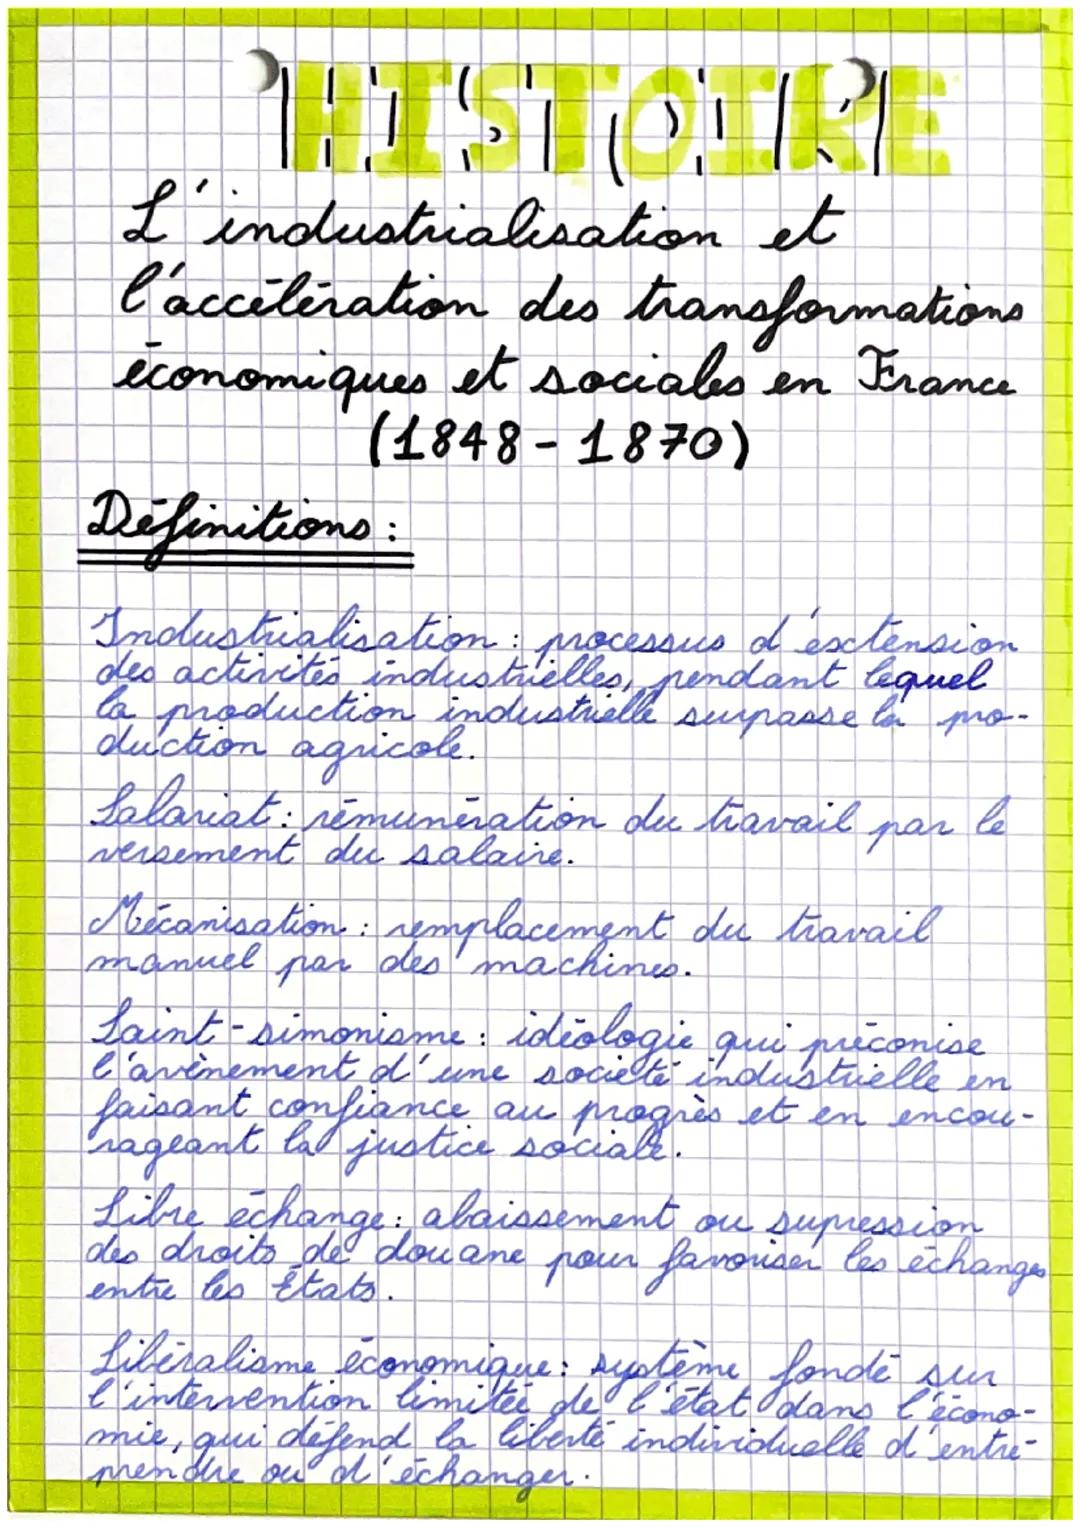 HISTOIRE
L'industrialisation et
l'accélération des transformations
économiques et sociales en France
(1848-1870)
Définitions :
Industrialisation : processus d'exctension
des activités industrielles, pendant lequel
la production industrielle surpasse la pro-
duction agricole.
Salariat : rémunération du travail par le
versement du salaire.
Mécanisation : remplacement du travail
manuel par des machines.
Saint-simonisme : idéologie qui préconise
l'avènement d'une société industrielle en
faisant confiance au progrès et en encou-
rageant la justice sociale.
Libre échange : abaissement ou supression
des droits de douane pour favoriser les échanges
entre les États.
Libéralisme économique : système fondé sur
l'intervention limitée de l'état dans l'écono-
mie, qui défend la liberté individuelle d'entre-
prendre ou d'échanger.